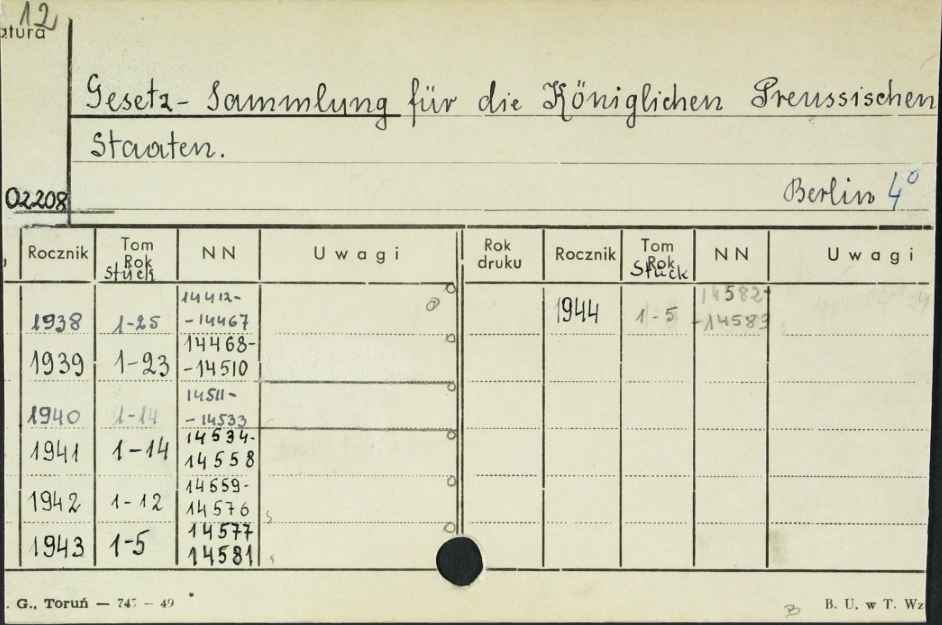 12
atura
Gesetz- Sammlung für die Königlichen Preussischen
Staaten.
02208
Berlin 4°
Rocznik Tom Rok Stück NN Uwagi Rok druku Rocznik Tom Rok Stück NN Uwagi
1938 1-25 14412- -14467 1944 1-5 14582- -14583
1939 1-23 14468- -14510
1940 1-14 14511- -14533
1941 1-14 14534- 14558
1942 1-12 14559- 14576
1943 1-5 14577 14581
. G., Toruń — 747 - 49
B. U. w T. Wz